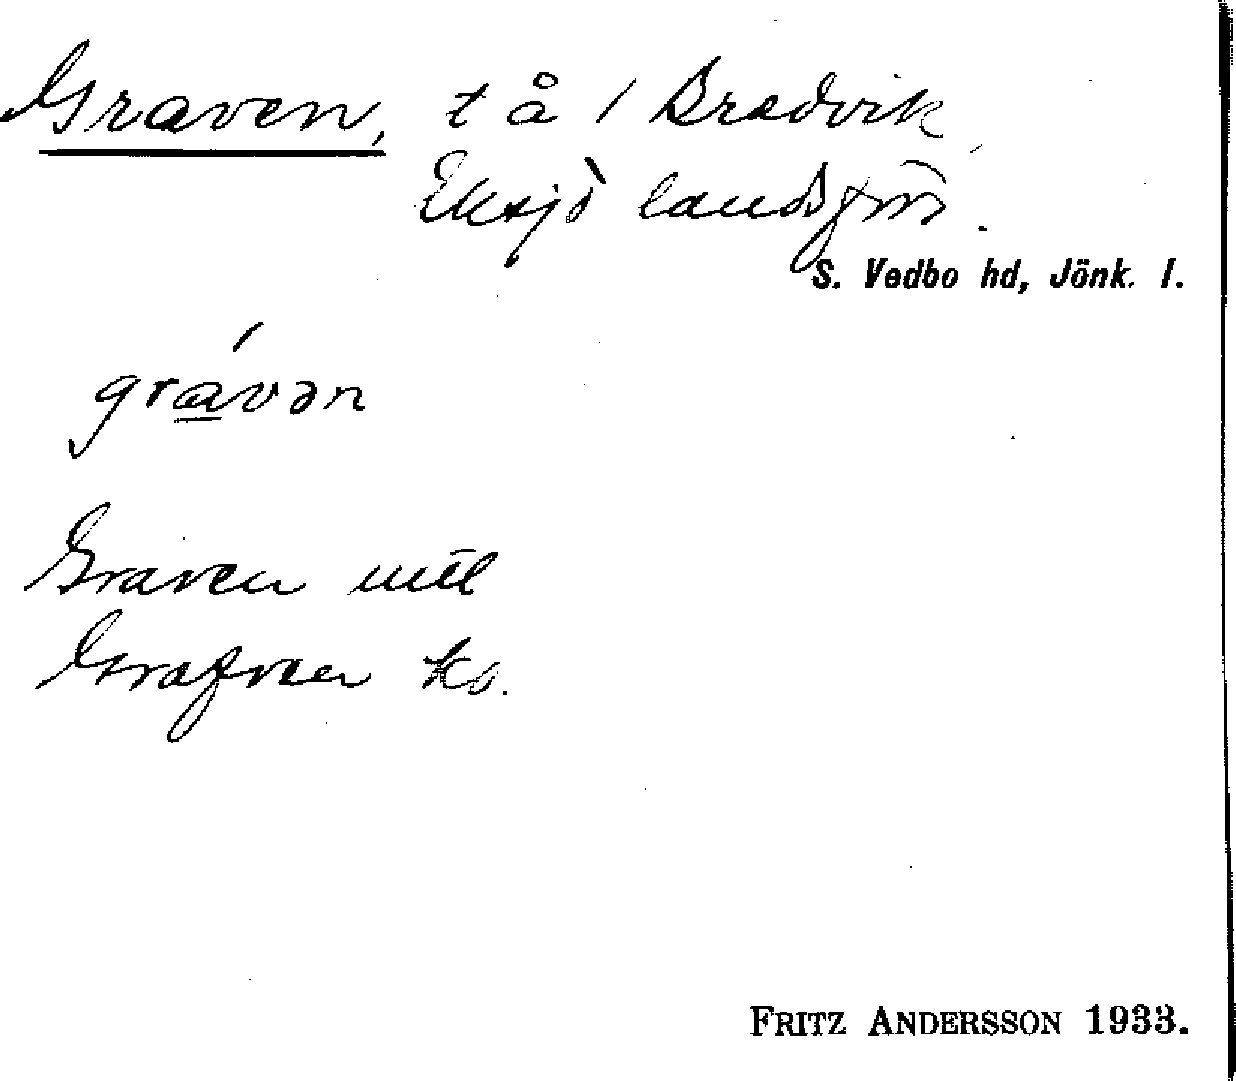 Graven, t å / Bredvik,
Eksjö landsförs.
S. Vedbo hd, Jönk. l.
grávən
Graven mtl
Grafven ks.
FRITZ ANDERSSON 1933.